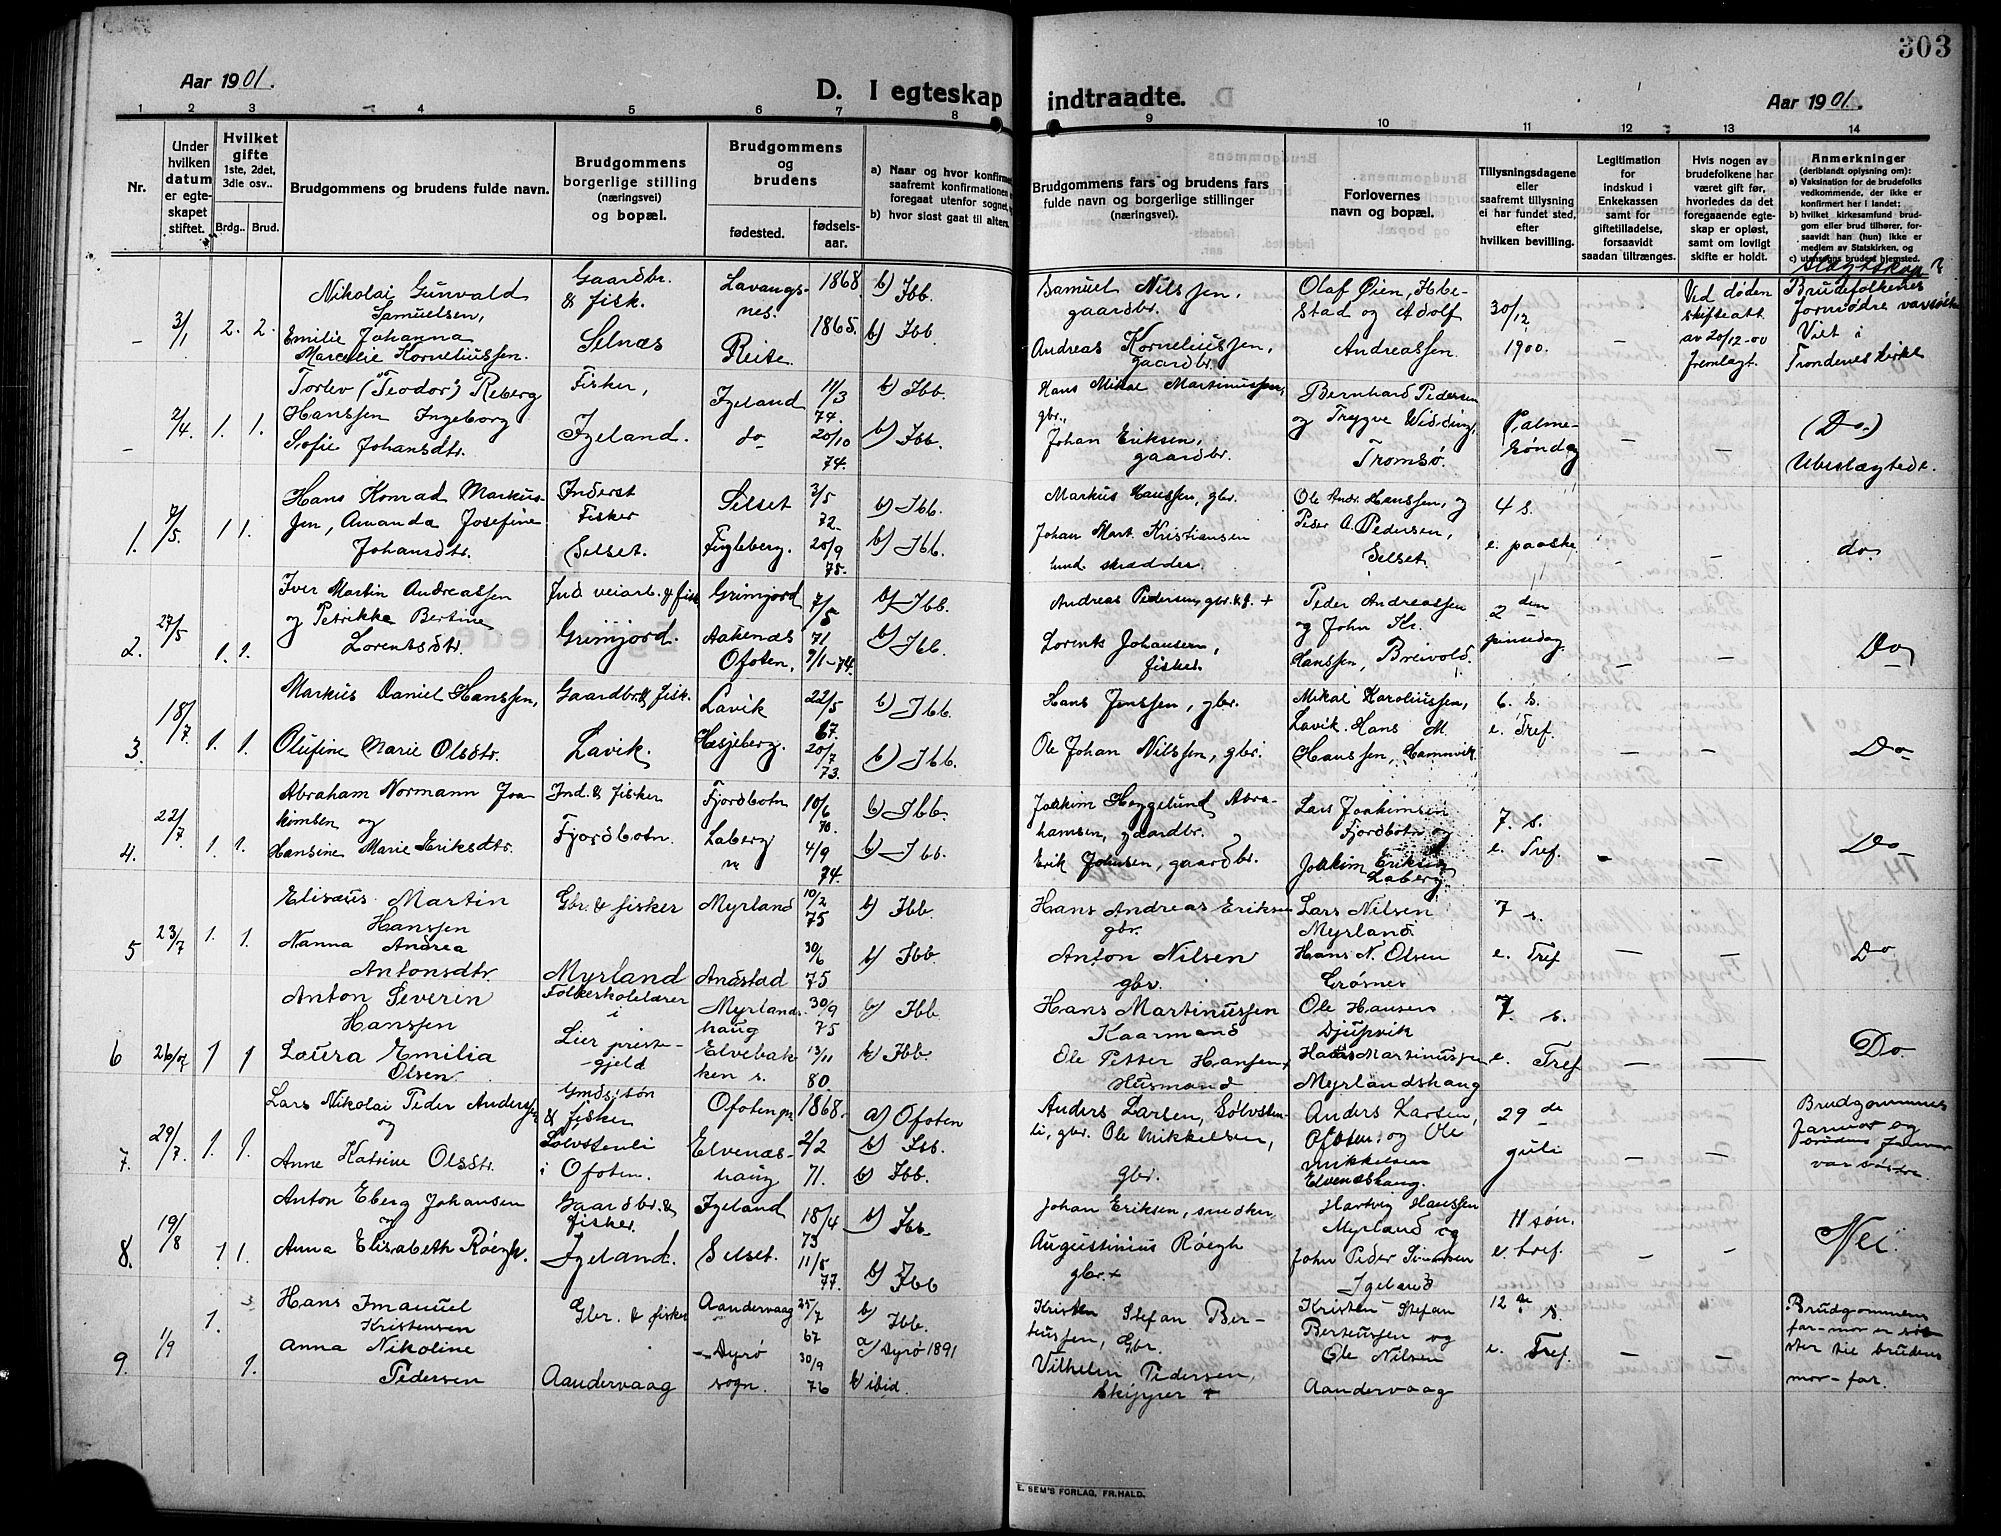 303
Aar 1901.
D. I egteskap indtraadte.
Aar 1901.
1 2 3 4 5 6 7 8 9 10 11 12 13 14
Nr.
Under hvilken datum er egteskapet stiftet.
Hvilket gifte 1ste, 2det, 3die osv..
Brdg.. Brud.
Brudgommens og brudens fulde navn.
Brudgommens borgerlige stilling (næringsvei) og bopæl.
Brudgommens og brudens
fødested.
fødselsaar.
a) Naar og hvor konfirm
saafremt konfirmationen
foregaat utenfor sognet,
b) hvor sidst gaat til alters.
Brudgommens fars og brudens fars fulde navn og borgerlige stillinger (næringsvei).
Forlovernes navn og bopæl.
Tillysningsdagene eller saafremt tillysning ei har fundet sted, efter hvilken bevilling.
Legitimation for indskud i Enkekassen samt for giftetilladelse, forsaavidt saadan tiltrænges.
Hvis nogen av brudefolkene har været gift før, hvorledes da det foregaaende egteskap er opløst, samt om lovligt skifte er holdt.
Anmerkninger
(deriblandt oplysning om):
a) Vaksination for de brudefolks vedkommende, der ikke er konfirmert her i landet:
b) hvilket kirkesamfund brudgom eller brud tilhører, forsaavidt han (hun) ikke er medlem av Statskirken, og
c) utensogns bruders hjemsted.
- 3/1 2. 2. Nikolai Gunvald Samuelsen, Gaardbr. & fisk. Lavangsnes. 1868. b) Ibb.
Emilie Johanna Marcelie Korneliussen. Selnæs Reite 1865. b) Ibb
Samuel Nilssen, gaardbr.
Andreas Korneliussen, gaardbr.
Olaf Øien, Ibbestad og Adolf Andreassen.
30/12 1900.
Ved døden skifteatt. av 20/12-00 fremlagt.
Slægtskap?
Brudefolkenes formødre var søstre
Viet i Trondenes kirke
- 2/4 1. 1. Torlev (Teodor?) Reberg Hanssen Ingeborg Sofie Johansdtr. Fisker, Igeland. Igeland 11/3 74. b) Ibb.
do 20/10 74. b) Ibb.
Hans Mikal Martinussen, gbr.,
Johan Eriksen, gaardbr.
Bernhard Pedersen og Trygve Widding, Tromsø.
Palmesøndag - -
(Do.)
Ubeslægtede.
1. 7/5. 1 1. Hans Konrad Markussen, Amanda Josefine Johansdtr. Inderst Fisker Selset. Selset 3/5 72. b) Ibb.
Fugleberg. 20/9 75. b) Ibb.
Markus Hanssen, gbr.
Johan Mart. Kristiansen
skrædder
Ole Andr. Hanssen, og Peder A. Pedersen, Selset.
4 s. e. paaske - -
do
2. 27/5 1. 1. Iver Martin Andreassen og Petrikke Bertine Lorentsdtr. Ind veiarb. & fisk Grimjord. Grimjord 7/5 71 b) Ibb.
Aakenæs Ofoten. 9/1-74. b) Ibb.
Andreas Pedersen, gbr. & f. +
Lorents Johansen, fisker.
Peder Andreassen og John Kr. Hanssen, Breivold.
2den pinsedag - -
Do
3. 18/7. 1. 1. Markus Daniel Hanssen, Gaardbr. & fisk. Lavik 22/5 67. b) Ibb.
Olufine Marie Olsdtr. Lavik. Hesjeberg. 20/7 73. b) Ibb.
Hans Jenssen, gbr.
Ole Johan Nilssen, gbr.
Mikal Karoliussen, Lavik. Hans M. Hanssen, Hamnvik.
6. s. e. Tref. - -
Do
4. 22/7 1. 1. Abraham Normann Joakimsen og Hansine Marie Eriksdtr. Ind. & fisker Fjordbotn. Fjordbotn 10/6 70. b) Ibb.
Laberg 4/9 74. b) Ibb.
Joakim Heggelund Abrahamsen, gaardbr.
Erik Johnsen, gaardbr.
Lars Joakimsen Fjordbotn og Joakim Eriksen Laberg.
7. s. e. Tref. - -
Do
5 23/7 1. 1. Elisæus Martin Hanssen Gbr. & fisker Myrland 10/2 75 b) Ibb.
Nanna Andrea Antonsdtr. Myrland Andstad 30/6 75 b) Ibb.
Hans Andreas Eriksen gbr.
Anton Nilsen gbr.
Lars Nilsen Myrland.
Hans N. Olsen Grøsnes
7 s. e. Tref - -
Do
6 26/07 1 1 Anton Severin Hanssen Folkeskolelærer i Lier prestegjeld Myrlandshaug 30/9 75 b) Ibb.
Laura Emilia Olsen. Elvebakken s. 13/11 80. b) Ibb.
Hans Martinussen Kaarmand
Ole Petter Hansen + Husmand
Ole Hansen Djupvik
Hans Martinussen Myrlandshaug
7. s. e. Tref - -
Do
7. 29/7. 1. 1. Lars Nikolai Peder Anderssen og Gmdssøn & fisker Ofoten pr. 1868. a) Ofoten b) Ibb.
Anne Katrine Olsdtr. Sølvstenli i Ofoten. Elvenæshaug 2/2 71. b) Ibb.
Anders Larsen, Sølvstenli, gbr. Ole Mikkelsen, gbr.
Anders Larsen, Ofoten, og Ole Mikkelsen Elvenæshaug.
29de juli - -
Brudgommens farmor og brudens farmor var søstre
8. 19/8 1. 1. Anton Eberg Johansen og Gaardbr. & fisker. Igeland 18/4 73 b) Ibb.
Anna Elisabeth Røegh. Igeland. Selset. 11/5 77. b) Ibb
Johan Eriksen, snedker,
Augustinius Røegh gbr. +
Hartvig Hanssen Myrland og John Peder Simonsen Igeland
11 søn. e. tref. - -
Nei.
9. 1/9 1. 1. Hans Imanuel Kristensen Gbr. & fisker Aandervaag 25/7 67 b) Ibb.
Anna Nikoline Pedersen Aandervaag Dyrø sogn. 30/9 76 a) Dyrø 1891 b) ibid.
Kristen Stefan Berteussen, Gbr.
Vilhelm Pedersen, Skipper +
Kristen Stefan Berteussen og Ole Nilsen Aandervaag
12te s. e. Tref. - -
Brudgommens far-mor er søster til brudens mor-far.
E. SEM'S FORLAG, FR.HALD.